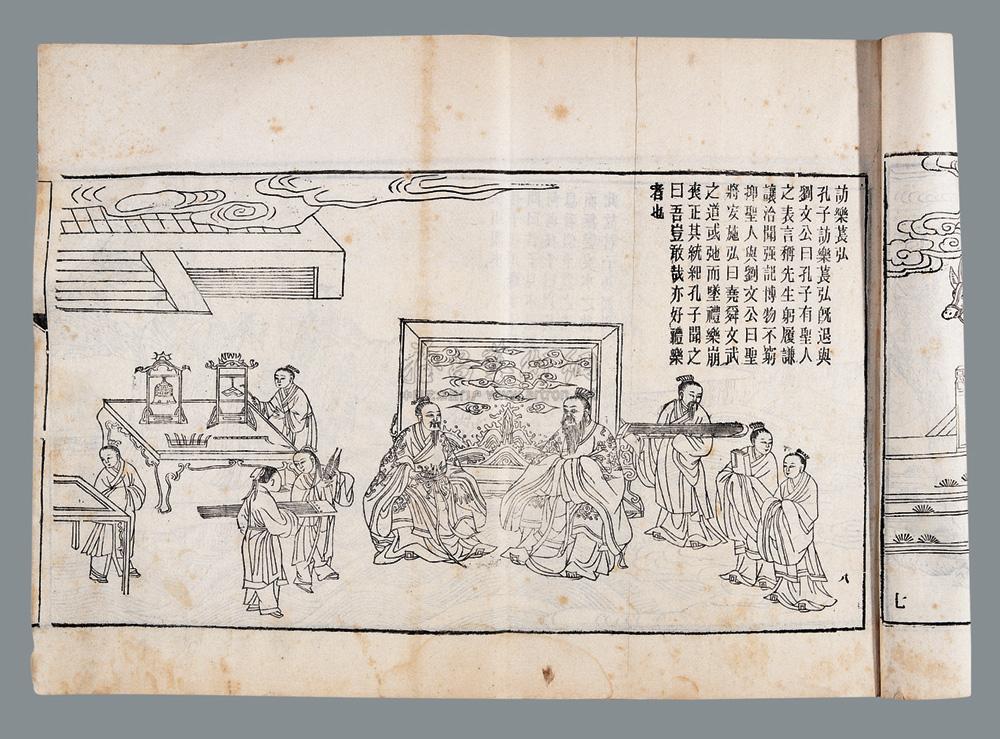 訪樂萇弘
孔子訪樂萇弘旣退與
劉文公曰孔子有聖人
之表言稱先生躬履謙
讓洽聞强記博物不窮
抑聖人與劉文公曰聖
將安施弘曰堯舜文武
之道或弛而墜禮樂崩
喪正其統紀孔子聞之
曰吾豈敢哉亦好禮樂
者也
八
七